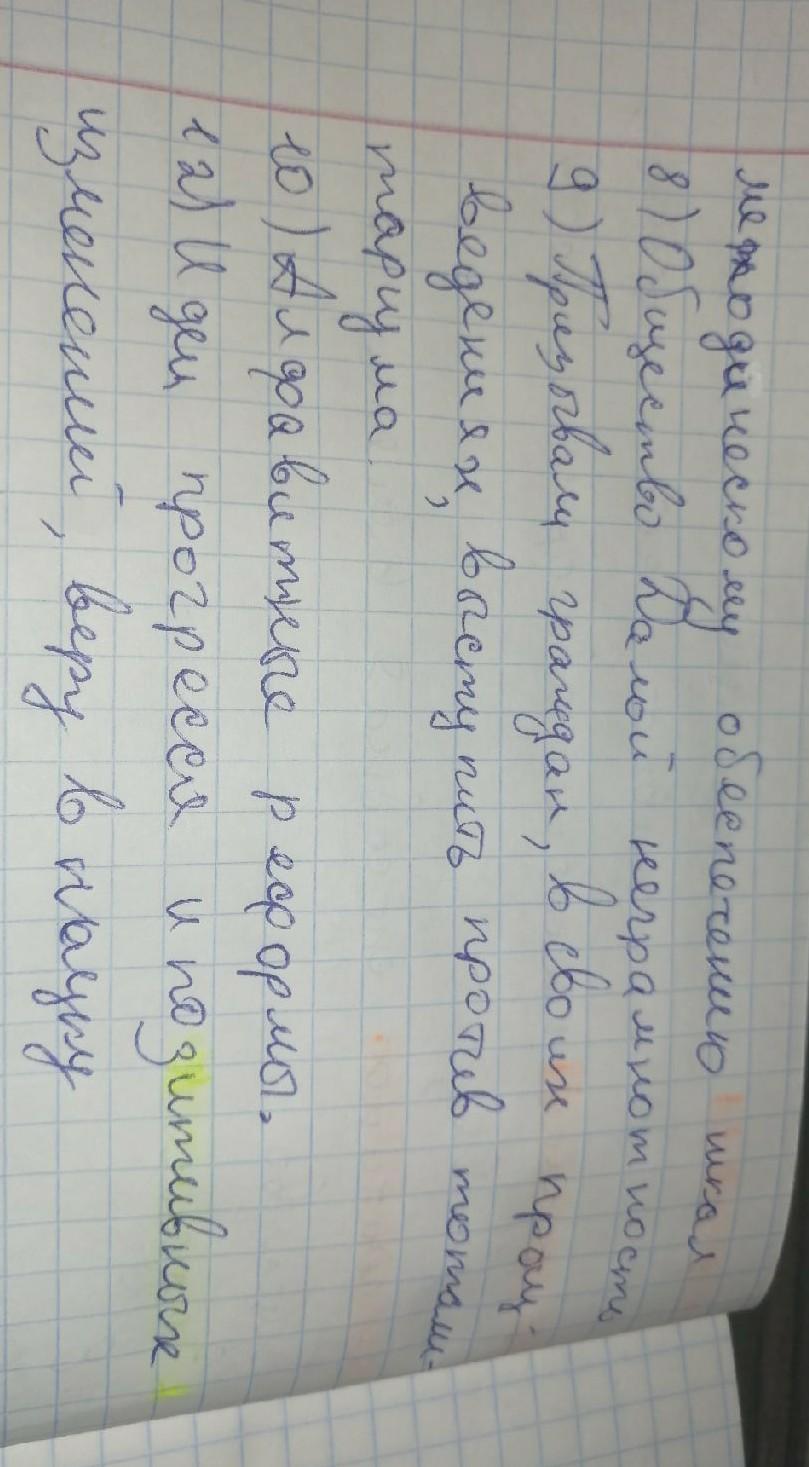 методическому обеспечению школ
8) Общество Далой неграмнотность
9) Призывали граждан, в своих произ-
ведениях, выступить против тотали-
таризма
10) Алфавитные реформы.
12) Идеи прогресса и позитивных
изменений, веру в науку